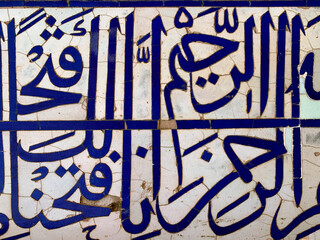 الرحمن الرحيم انا فتحنا لك فتحا